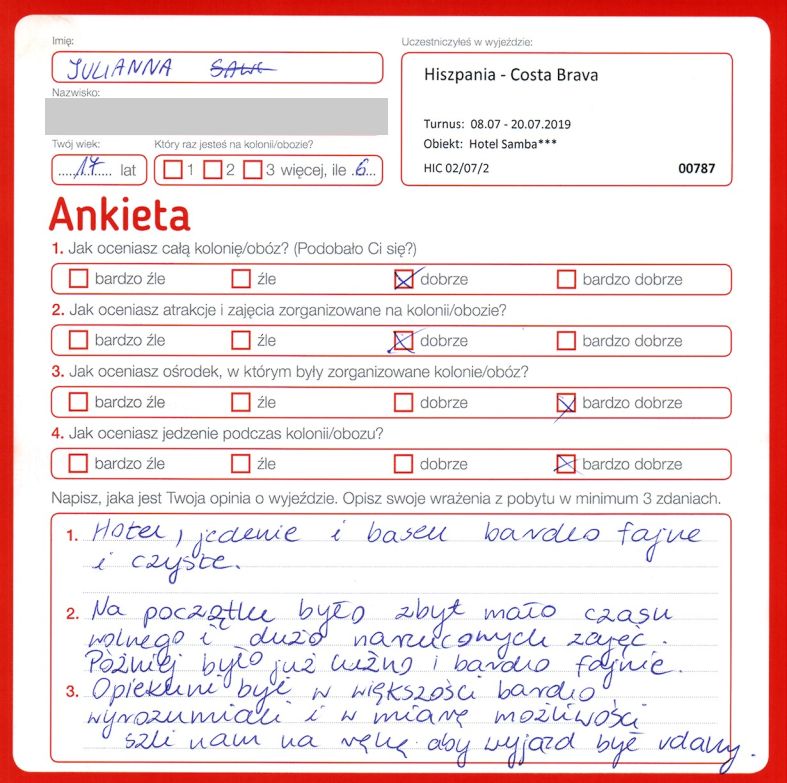 Imię:
JULIANNA
Nazwisko:
Twój wiek: Który raz jesteś na kolonii/obozie?
.....17..... lat 1 2 3 więcej, ile .6...
Uczestniczyłeś w wyjeździe:
Hiszpania - Costa Brava
Turnus: 08.07 - 20.07.2019
Obiekt: Hotel Samba***
HIC 02/07/2 00787
Ankieta
1. Jak oceniasz całą kolonię/obóz? (Podobało Ci się?)
bardzo źle źle dobrze bardzo dobrze
2. Jak oceniasz atrakcje i zajęcia zorganizowane na kolonii/obozie?
bardzo źle źle dobrze bardzo dobrze
3. Jak oceniasz ośrodek, w którym były zorganizowane kolonie/obóz?
bardzo źle źle dobrze bardzo dobrze
4. Jak oceniasz jedzenie podczas kolonii/obozu?
bardzo źle źle dobrze bardzo dobrze
Napisz, jaka jest Twoja opinia o wyjeździe. Opisz swoje wrażenia z pobytu w minimum 3 zdaniach.
1. Hotel, jedzenie i basen bardzo fajne
i czyste.
2. Na początku było zbyt mało czasu
wolnego i dużo narzuconych zajęć.
Później było już luźno i bardzo fajnie.
3. Opiekuni byli w większości bardzo
wyrozumiali i w miarę możliwości
szli nam na rękę aby wyjazd był udany.